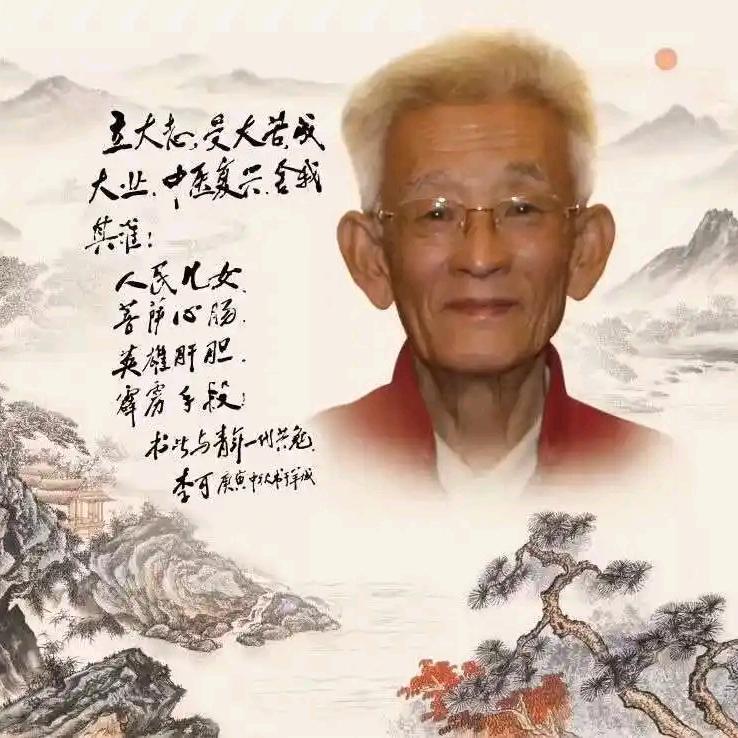 立大志,受大苦,成
大业,中医复兴,舍我
其谁!
人民儿女,
菩萨心肠,
英雄肝胆,
霹雳手段!
书此与青年一代共勉,
李可 庚寅中秋书于羊城